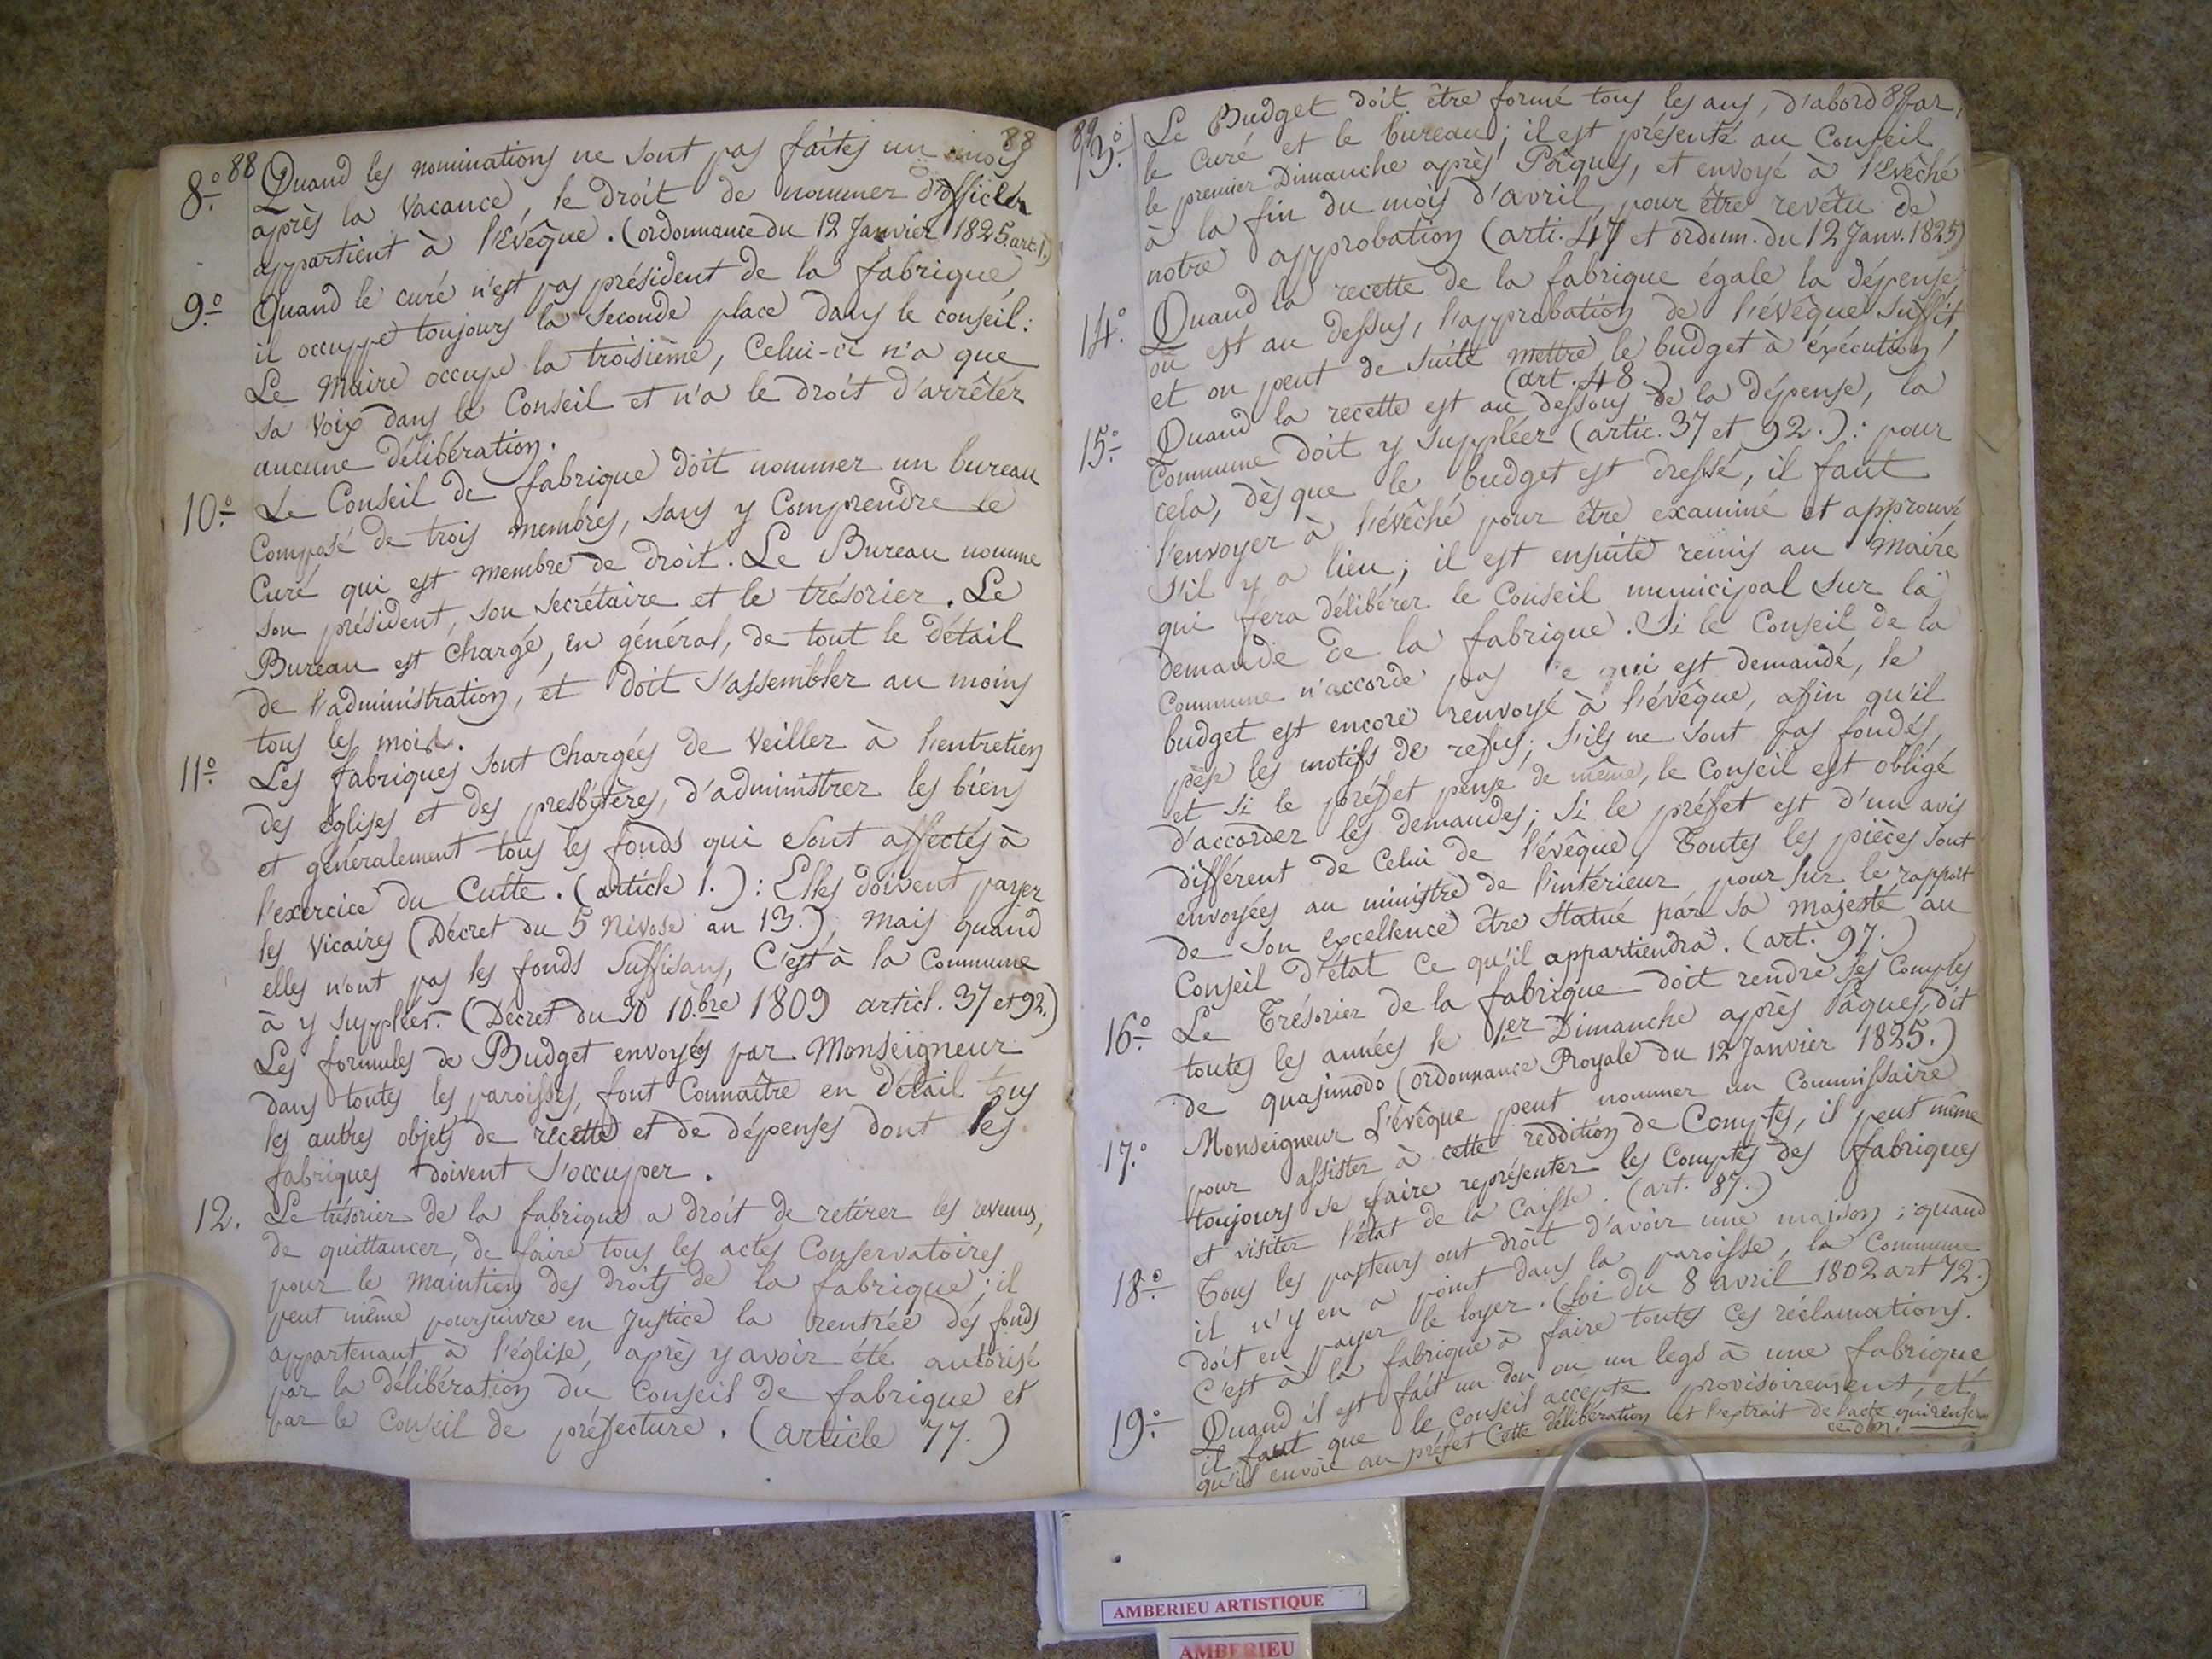 88 88
8.° Quand les nominations ne sont pas faites un mois
après la Vacance, le droit de nommer d'office
appartient à l'Evêque. (ordonnance du 12 Janvier 1825. art. 1.)
9.° Quand le curé n'est pas président de la fabrique,
il occupe toujours la seconde place dans le conseil:
Le Maire occupe la troisième, Celui-ci n'a que
sa Voix dans le Conseil et n'a le droit d'arrêter
aucune délibération.
10.° Le Conseil de fabrique doit nommer un bureau
Composé de trois membres, sans y Comprendre le
Curé qui est membre de droit. Le Bureau nomme
son président, son secrétaire et le trésorier. Le
Bureau est chargé, en général, de tout le détail
de l'administration, et doit s'assembler au moins
tous les mois.
11.° Les fabriques sont Chargées de Veiller à l'entretien
des églises et des presbytères, d'administrer les biens
et généralement tous les fonds qui sont affectés à
l'exercice du Culte. (article 1.): Elles doivent payer
les Vicaires (Décret du 5 Nivose an 13.), mais quand
elles n'ont pas les fonds suffisans, C'est à la Commune
à y suppléer. (Décret du 30 10.bre 1809 articl. 37 et 92.)
Les formules de Budget envoyées par Monseigneur
dans toutes les paroisses, font Connaître en détail tous
les autres objets de récette et de dépenses dont les
fabriques doivent s'occuper.
12. Le trésorier de la fabrique a droit de retirer les revenus,
de quittancer, de faire tous les actes Conservatoires
pour le Maintien des droits de la fabrique; il
peut même poursuivre en Justice la rentrée des fonds
appartenant à l'église, après y avoir été autorisé
par la délibération du Conseil de fabrique et
par le Conseil de préfecture. (article 77.)
89 89
13.° Le Budget doit être formé tous les ans, d'abord par
le Curé et le bureau; il est présenté au Conseil
le premier Dimanche après Pâques, et envoyé à l'Evêché
à la fin du mois d'avril, pour être revêtu de
notre approbation (arti. 47 et ordonn. du 12 Janv. 1825)
14.° Quand la recette de la fabrique égale la dépense,
ou est au dessus, l'approbation de l'évêque suffit,
et on peut de suite mettre le budget à éxécution!
(art. 48.)
15.° Quand la recette est au dessous de la dépense, la
Commune doit y suppléer (artic. 37 et 92.): pour
cela, dès que le budget est dressé, il faut
l'envoyer à l'évêché pour être examiné et approuvé
s'il y a lieu; il est ensuite remis au maire
qui fera délibérer le Conseil municipal sur la
demande de la fabrique. Si le Conseil de la
Commune n'accorde pas ce qui est demandé, le
budget est encore renvoyé à l'évêque, afin qu'il
pèse les motifs de refus; s'ils ne sont pas fondés,
et si le préfet pense de même, le Conseil est obligé
d'accorder les demandes; si le préfet est d'un avis
différent de Celui de l'évêque, Toutes les pièces sont
envoyées au ministre de l'intérieur pour sur le rapport
de son excellence être statué par sa majesté au
Conseil d'état Ce qu'il appartiendra. (art. 97.)
16.° Le Trésorier de la fabrique doit rendre ses Comptes
toutes les années le 1er Dimanche après Pâques, dit
de quasimodo (ordonnance Royale du 12 Janvier 1825.)
17.° Monseigneur L'évêque peut nommer un Commissaire
pour assister à cette reddition de Comptes, il peut même
toujours se faire représenter les Comptes des fabriques
et visiter l'état de la Caisse. (art. 87.)
18.° Tous les pasteurs ont droit d'avoir une maison; quand
il n'y en a point dans la paroisse, la Commune
doit en payer le loyer. (Loi du 8 avril 1802 art 72.)
C'est à la fabrique à faire toutes ces réclamations.
19.° Quand il est fait un don ou un legs à une fabrique
il faut que le Conseil accepte provisoirement, et
qu'il envoie au préfet Cette délibération et l'extrait de l'acte qui renferme
ce don.
AMBERIEU ARTISTIQUE
AMBERIEU